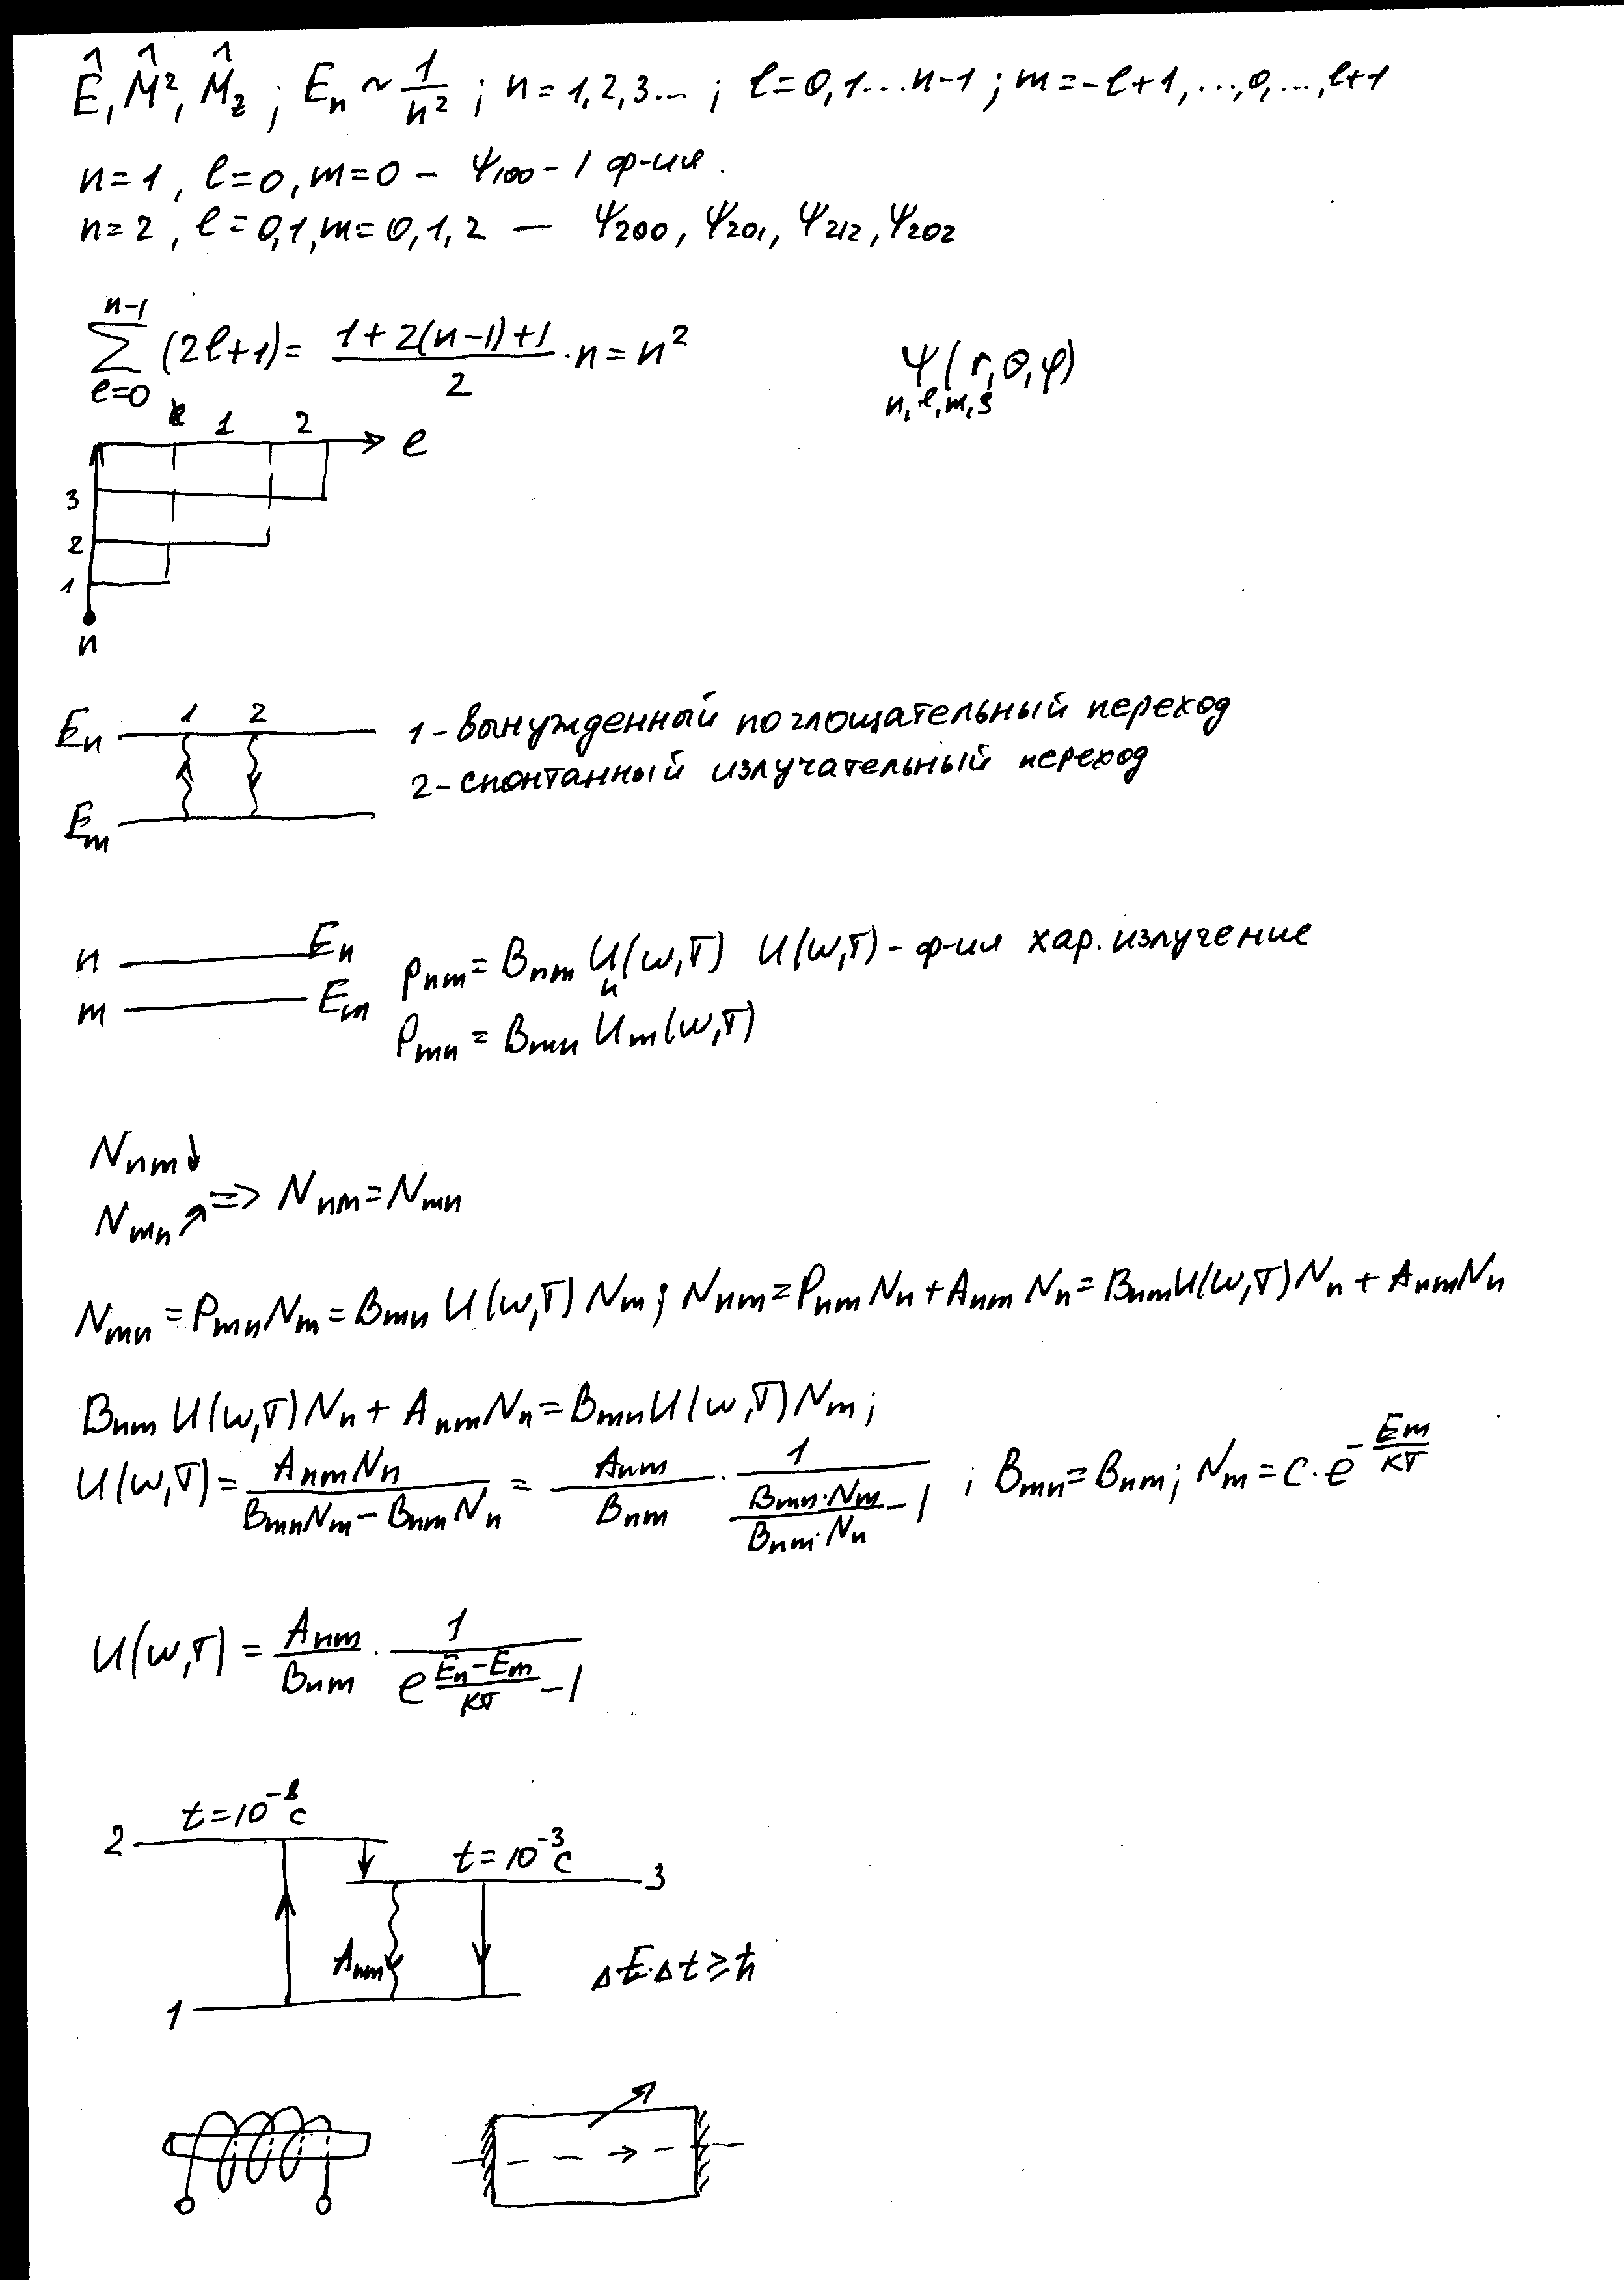 Ê, M̂², M̂z ; En ~ 1/n² ; n = 1, 2, 3... ; l = 0, 1...n-1 ; m = -l+1, ..., 0, ..., l+1
n = 1, l = 0, m = 0 – ψ100 – 1 ф-ия.
n = 2, l = 0,1, m = 0, 1, 2 — ψ200, ψ201, ψ212, ψ202
∑(l=0)^(n-1) (2l+1) = (1+2(n-1)+1)/2 · n = n²
Ψ(r, θ, φ)
n, l, m, s
1 2 l
3
2
1
n
En 1 2 1 - вынужденный поглощательный переход
Em 2 - спонтанный излучательный переход
n En Pnm = Bnm Un(ω,T) U(ω,T) - ф-ия хар. излучение
m Em Pmn = Bmn Um(ω,T)
Nnm↓
Nmn↗ => Nnm = Nmn
Nmn = Pmn Nm = Bmn U(ω,T) Nm ; Nnm = Pnm Nn + Anm Nn = Bnm U(ω,T) Nn + Anm Nn
Bnm U(ω,T) Nn + Anm Nn = Bmn U(ω,T) Nm ;
U(ω,T) = Anm Nn / (Bmn Nm - Bnm Nn) = Anm/Bnm · 1/((Bmn·Nm)/(Bnm·Nn) - 1) ; Bmn = Bnm ; Nm = C·e^(-Em/кT)
U(ω,T) = Anm/Bnm · 1/(e^((En-Em)/кT) - 1)
t = 10^-8 c
2
t = 10^-3 c
3
Anm
ΔE·Δt ≥ ħ
1